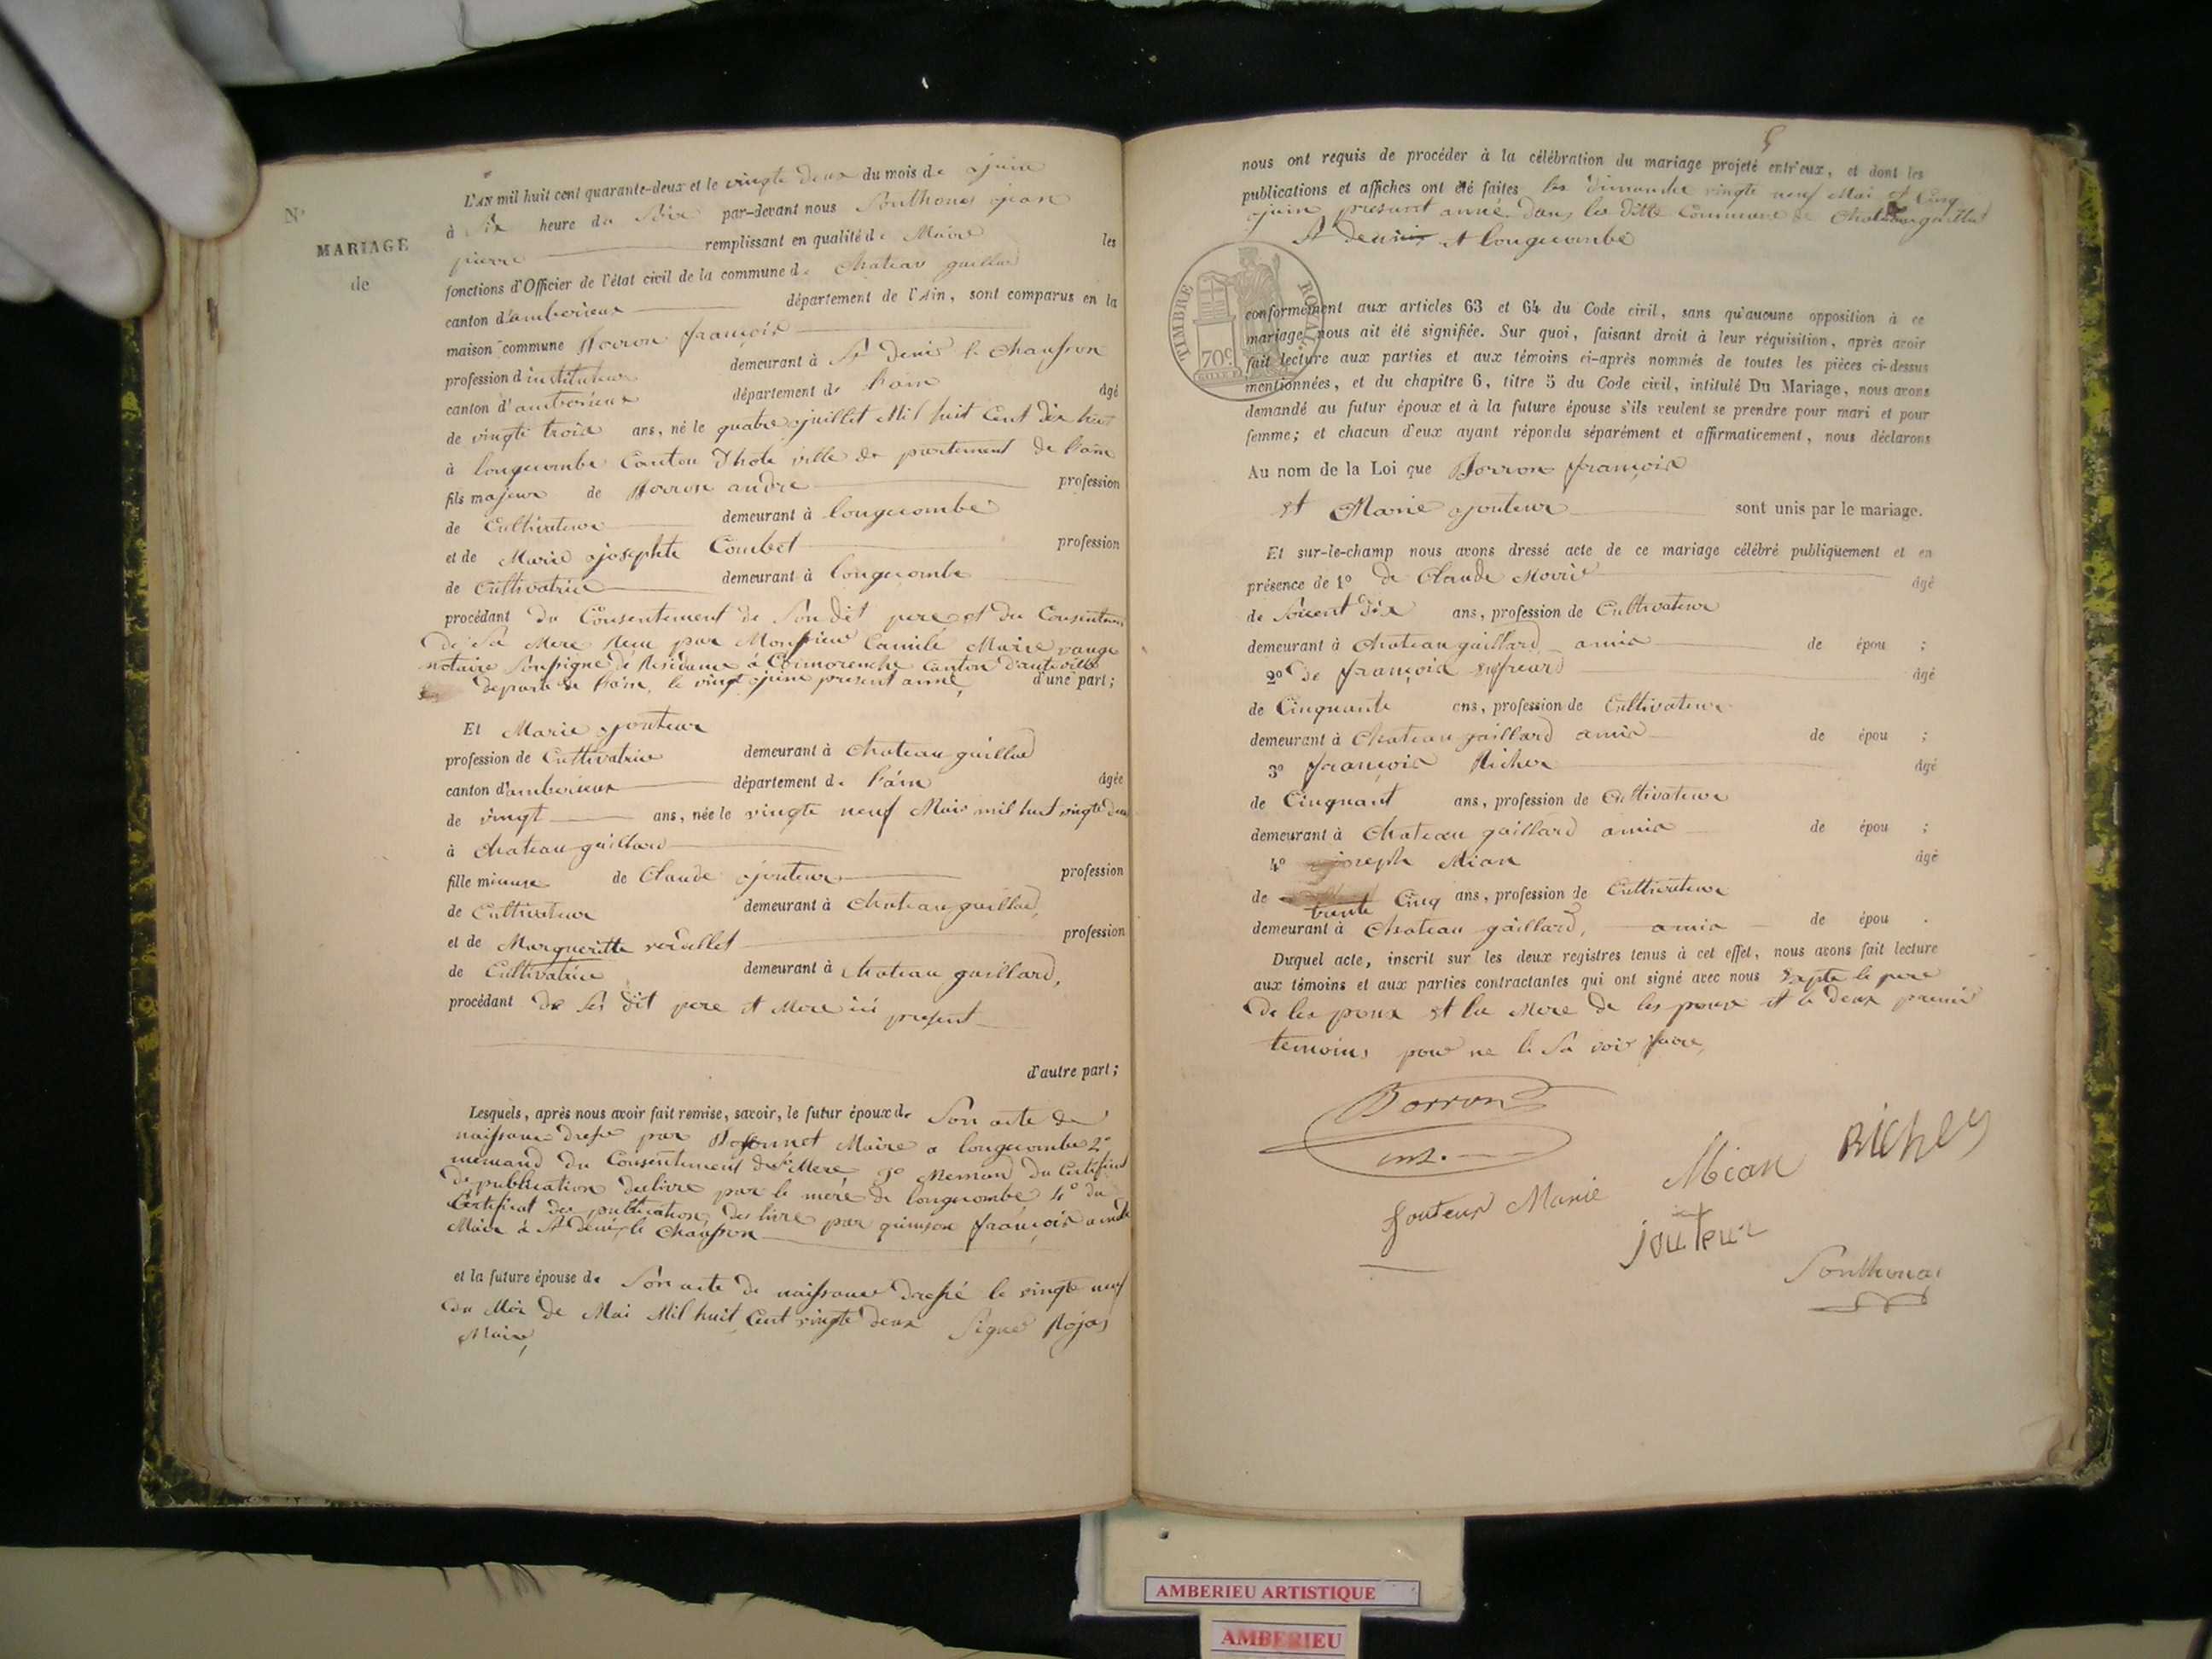 N°
MARIAGE
de
L'AN mil huit cent quarante-deux et le vingte deux du mois de juin
à Six heure du Soir par-devant nous Southonas jean
pierre remplissant en qualité de Maire les
fonctions d'Officier de l'état civil de la commune de Chateau gaillard
canton d'amberieux département de l'Ain, sont comparus en la
maison commune Borron françois
profession d'instituteur demeurant à St Denis le Chausson
canton d'amberieux département de l'ain âgé
de vingte trois ans, né le quatre juillet Mil huit Cent dix huit
à longecombe Canton D'hote ville de partement de l'ain
fils majeur de Borron andré profession
de Cultivateur demeurant à longecombe
et de Marie josephte Combet profession
de Cultivatrice demeurant à longecombe
procédant du Consentement de Son dit pere et du Consentem
De Sa Mere Recu par Monsieur Camile Marie
notaire Soussigné de Residence à Cormorenche Canton D'auteville
departe de l'ain, le vingt juin present anné, d'une part;
Et Marie jouteur
profession de Cultivatrice demeurant à Chateau gaillard
canton d'amberieux département de l'ain âgée
de vingt ans, née le vingte neuf Mai mil huit vingte deux
à Chateau gaillard
fille mineure de Claude jouteur profession
de Cultivateur demeurant à Chateau gaillard,
et de Margueritte profession
de Cultivatrice demeurant à Chateau gaillard,
procédant de Ses dit pere et Mere ici present
d'autre part;
Lesquels, après nous avoir fait remise, savoir, le futur époux de Son acte de
naissance Dressé par Maire a longecombe 2°
du Consentement de Sa Mere 3° du Certificat
De publication delivre par le mere de longecombe, 4° du
Certificat des publication delivre par françois
Maire à St denis le Chausson
et la future épouse de Son acte de naissance Dressé le vingte neuf
du Moi de Mai Mil huit Cent vingte deux Signé Rojas
Maire,
5
nous ont requis de procéder à la célébration du mariage projeté entr'eux, et dont les
publications et affiches ont été faites les dimanche vingte neuf Mai et Cinq
juin present anné Dans les ditte Commune de Chateau gaillard
St denis et longecombe
TIMBRE ROYAL
70c
conformément aux articles 63 et 64 du Code civil, sans qu'aucune opposition à ce
mariage nous ait été signifiée. Sur quoi, faisant droit à leur réquisition, après avoir
fait lecture aux parties et aux témoins ci-après nommés de toutes les pièces ci-dessus
mentionnées, et du chapitre 6, titre 5 du Code civil, intitulé Du Mariage, nous avons
demandé au futur époux et à la future épouse s'ils veulent se prendre pour mari et pour
femme; et chacun d'eux ayant répondu séparément et affirmativement, nous déclarons
Au nom de la Loi que Borron françois
et Marie jouteur sont unis par le mariage.
Et sur-le-champ nous avons dressé acte de ce mariage célébré publiquement et en
présence de 1° de Claude âgé
de Soicent dix ans, profession de Cultivateur
demeurant à Chateau gaillard amis de épou ;
2° de françois âgé
de Cinquante ans, profession de Cultivateur
demeurant à Chateau gaillard amis de épou ;
3° françois Richer âgé
de Cinquant ans, profession de Cultivateur
demeurant à Chateau gaillard amis de épou ;
4° joseph Mian âgé
de trente Cinq ans, profession de Cultivateur
demeurant à Chateau gaillard, amis de épou .
Duquel acte, inscrit sur les deux registres tenus à cet effet, nous avons fait lecture
aux témoins et aux parties contractantes qui ont signé avec nous Sapte le pere
De les poux et la Mere de les poux et le deux premie
temoins pour ne le Sa voir faire,
Borron
inst.
Mian Richer
Jouteur Marie
jouteur
Southonas
AMBERIEU ARTISTIQUE
AMBERIEU